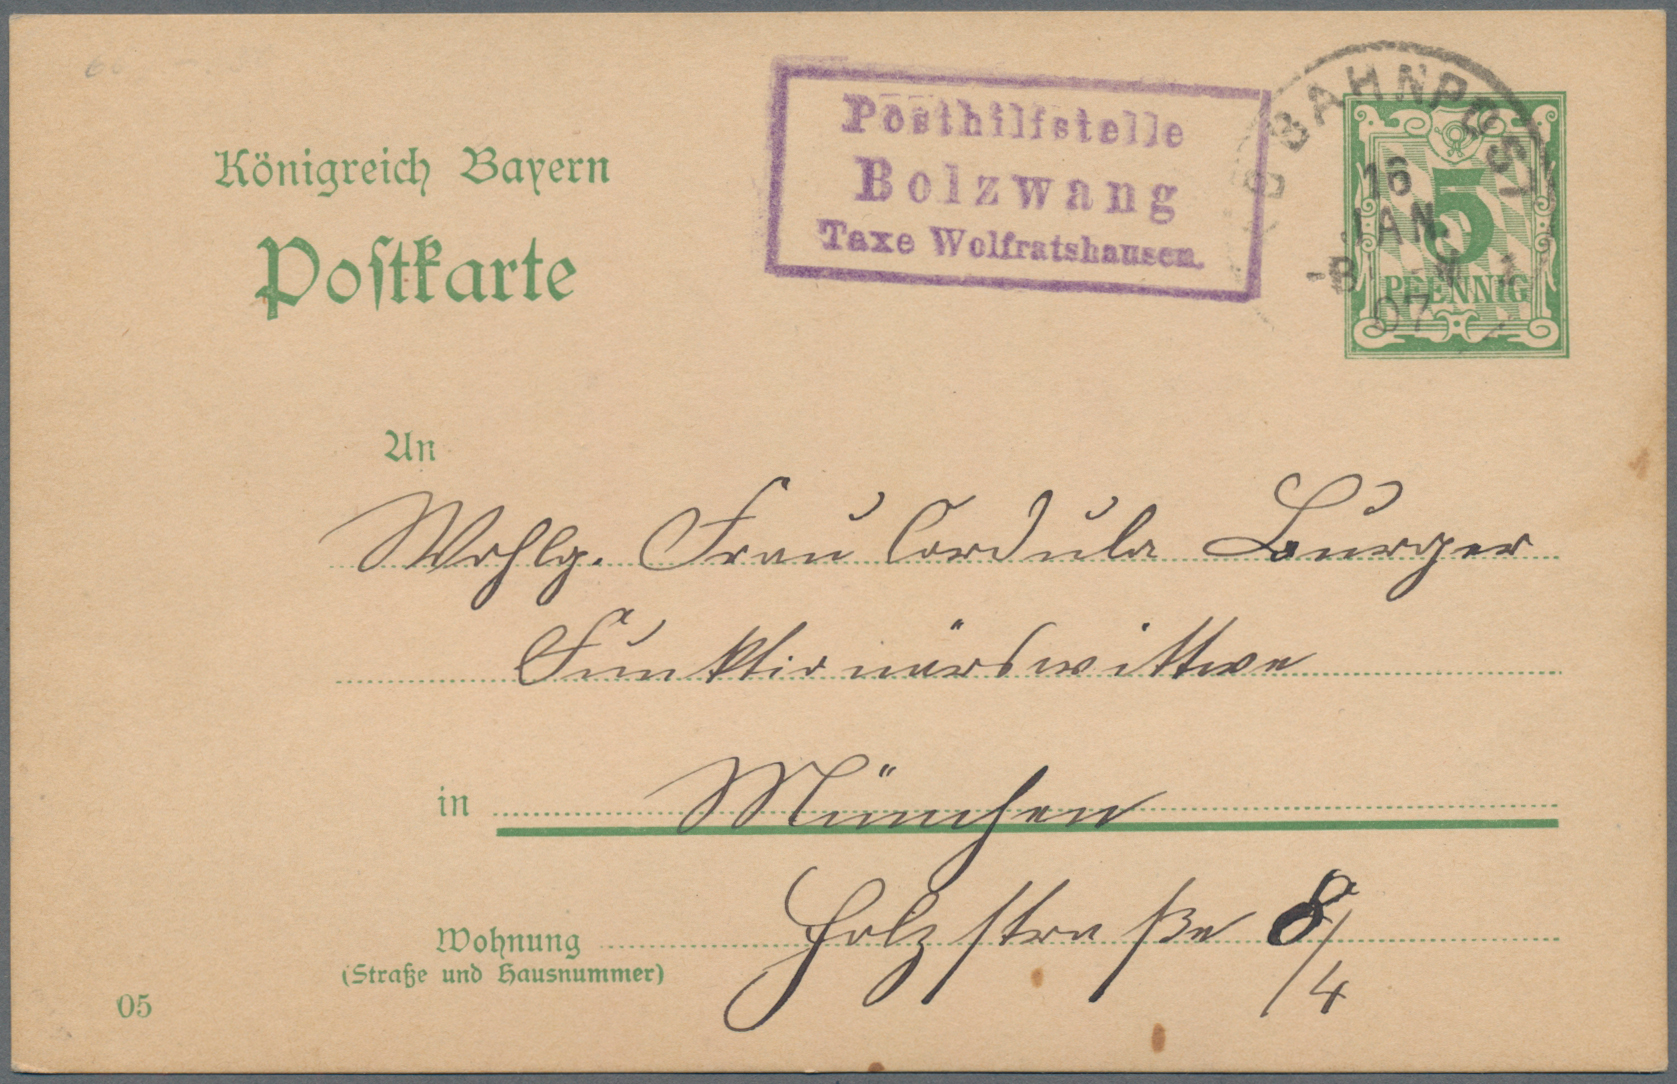 Königreich Bayern
Postkarte
Posthilfstelle
Bolzwang
Taxe Wolfratshausen.
BAHNPOST
16
JAN.
07
5
PFENNIG
An
Wohlg. Frau Cordula Burger
Funktionärswittwe
in München
Wohnung Holzstraße 8/4
(Straße und Hausnummer)
05